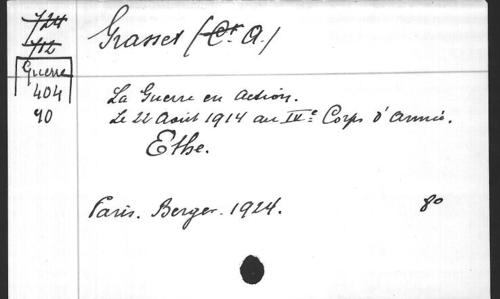 724
712
Guerre
404
90
Grasset (Cr. A.)
La Guerre en action.
Le 22 Août 1914 au IVe Corps d'Armée.
Ethe.
Paris. Berger. 1924.
80